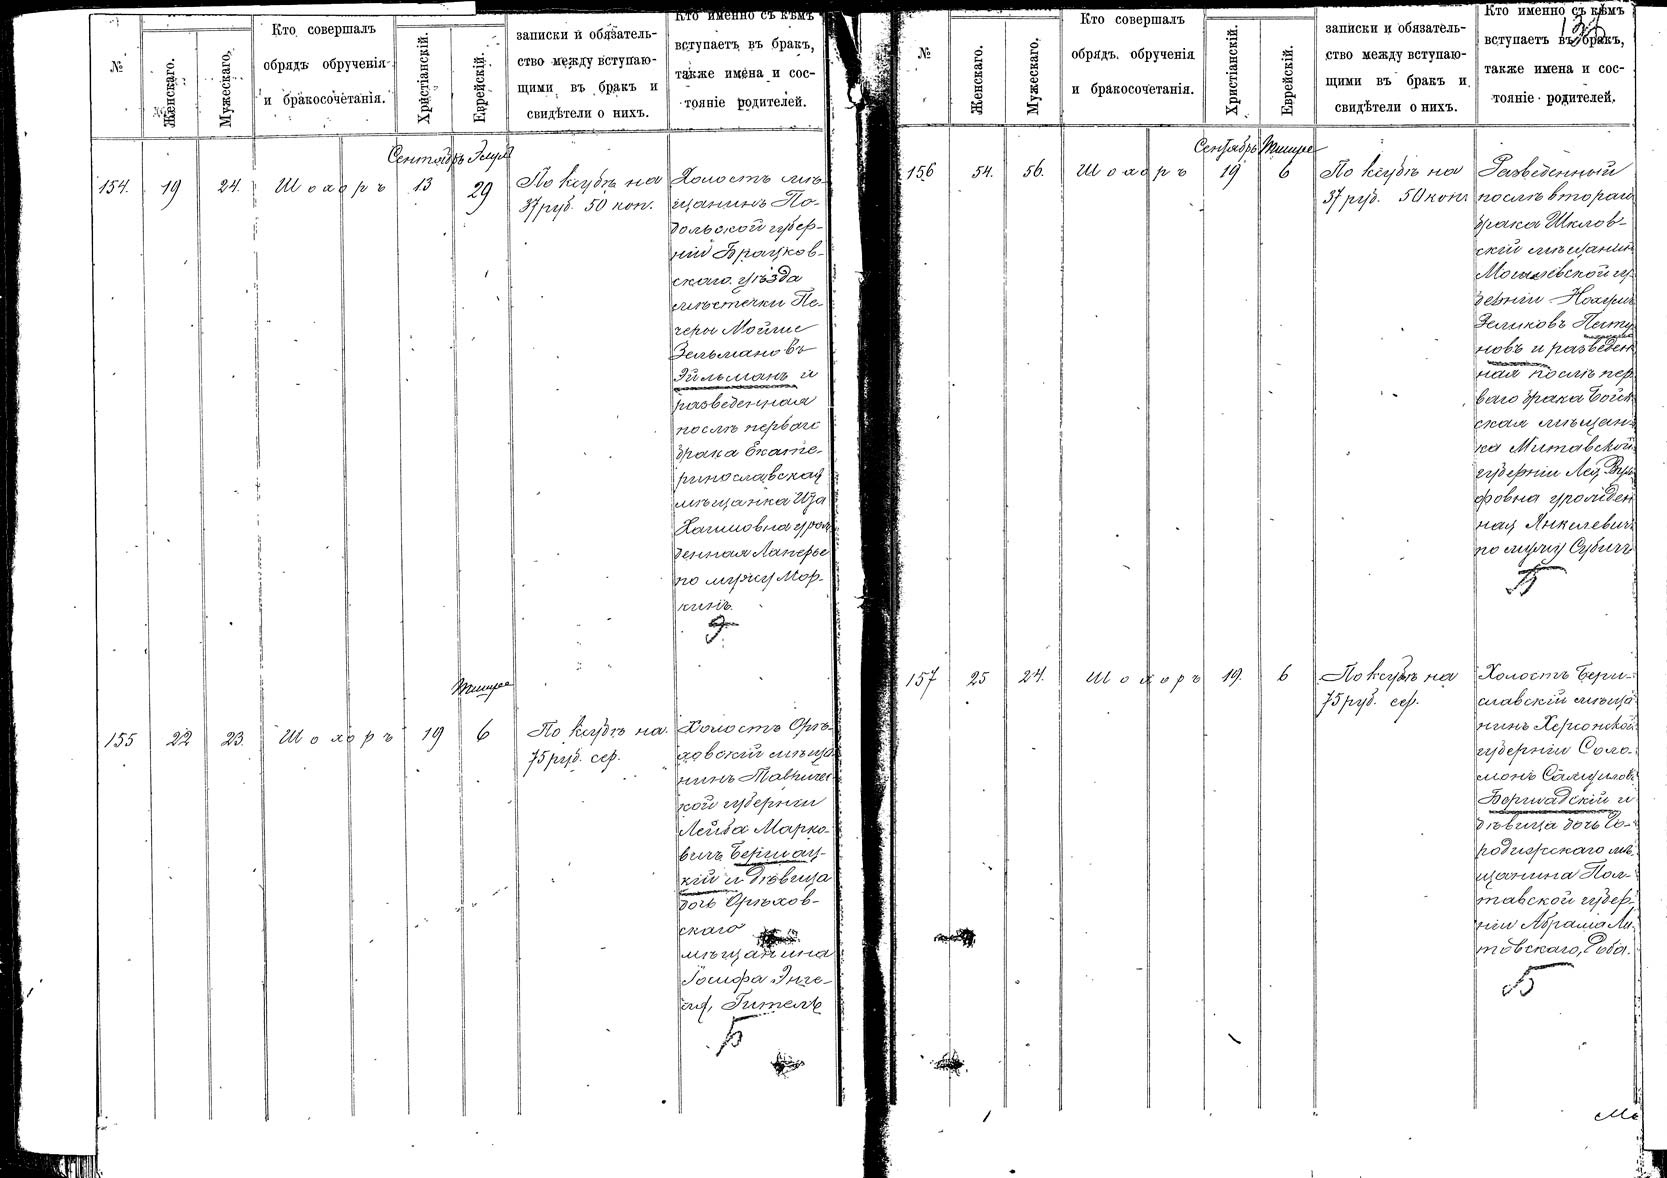 №
Женскаго.
Мужескаго.
Кто совершалъ
обрядъ обрученія
и бракосочетанія.
Христіанскій.
Еврейскій.
записки и обязатель-
ство между вступаю-
щими въ бракъ и
свидѣтели о нихъ.
Кто именно съ кѣмъ
вступаетъ въ бракъ,
также имена и сос-
тояніе родителей.
Сентябрь Элулъ
154. 19 24. Шохоръ 13 29
По ксубѣ на
37 руб. 50 коп.
Холостъ мѣ-
щанинъ По-
дольской губер-
ніи Брацков-
скаго уѣзда
мѣстечки Пе-
черы Мойше
Зельмановъ
Эйльманъ и
разведенная
послѣ перваго
брака Екате-
ринославская
мѣщанка Иза
Хаимовна урож
денная Ланерье
по мужу Мор-
кинъ.
Э
Тишре
155 22 23. Шохоръ 19 6
По ксубѣ на
75 руб. сер.
Холостъ Орѣ-
ховскій мѣща
нинъ Тавричес
кой губерніи
Лейба Марко-
вичъ Бершац-
кій и дѣвица
дочь Орѣхов-
скаго
мѣщанина
Іосифа Энге-
ля, Гитель
Б
137
№
Женскаго.
Мужескаго.
Кто совершалъ
обрядъ обрученія
и бракосочетанія.
Христіанскій.
Еврейскій.
записки и обязатель-
ство между вступаю-
щими въ бракъ и
свидѣтели о нихъ.
Кто именно съ кѣмъ
вступаетъ въ бракъ,
также имена и сос-
тояніе родителей.
Сентябрь Тишре
156 54. 56. Шохоръ 19 6
По ксубѣ на
37 руб. 50 коп.
Разведенный
послѣ втораго
брака Шклов-
скій мѣщанин
Могилевской гу
берніи Нохумъ
Зеликовъ Пату
новъ и разведен
ная послѣ пер
ваго брака
ская мѣщан-
ка Митавской
губерніи Лея Вуль
фовна урожден
ная Янкелевичъ
по мужу Субичъ
Б
157 25 24. Шохоръ 19. 6
По ксубѣ на
75 руб. сер.
Холостъ Бери-
славскій мѣща
нинъ Херсонской
губерніи Соло-
монъ Самуилов
Бершадскій и
дѣвица дочь Го-
родижскаго мѣ-
щанина Пол-
тавской губер-
ніи Абрама Ли
товскаго, Доба.
Б